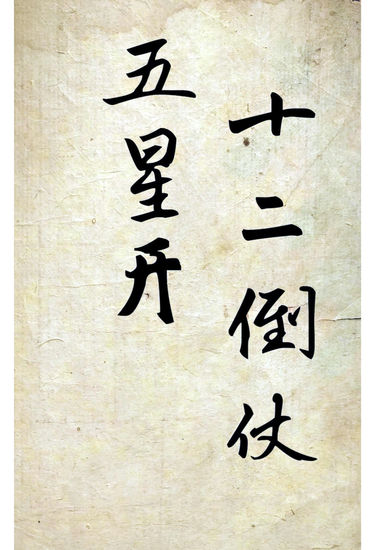 十二倒仗
五星开